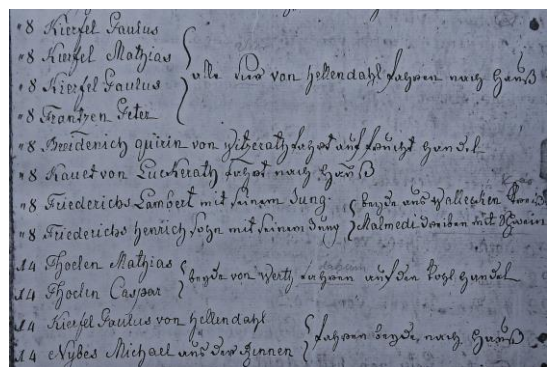 "8 Kierfel Paulus
"8 Kierfel Mathias
"8 Kierfel Paulus
"8 Frantzen Peter
alle vier von Hellendahl fahren nach Hauß
"8 Breidenich quirin von fahrt auf frucht handel
"8 Kauet von Luckerath fahrt nach Hauß
"8 Friederichs Lambert mit seinem Jung
"8 Friederichs Henrich sohn mit seinem Jung
beyde aus
Malmedi mit
14 Thoelen Mathias
14 Thoelen Caspar
beyde von Werth fahren auf den Kohl handel
14 Kierfel Paulus von Hellendahl
14 Nybes Michael aus der Zinnen
fahren beyde nach Hauß